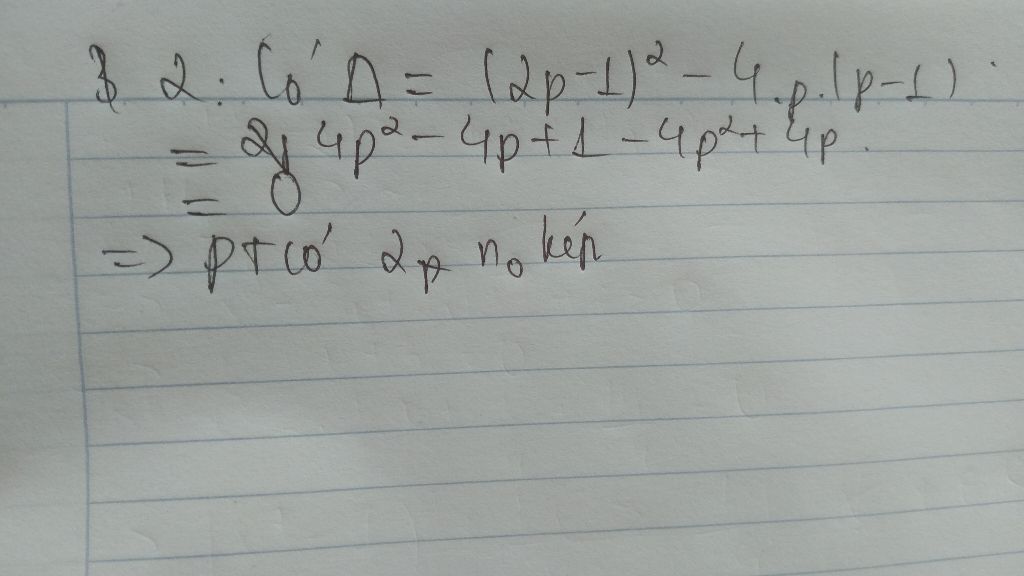 2: Có Δ = (2p-1)² - 4.p.(p-1)
= 4p² - 4p + 1 - 4p² + 4p.
= 0
=> pt có 2 n₀ kép